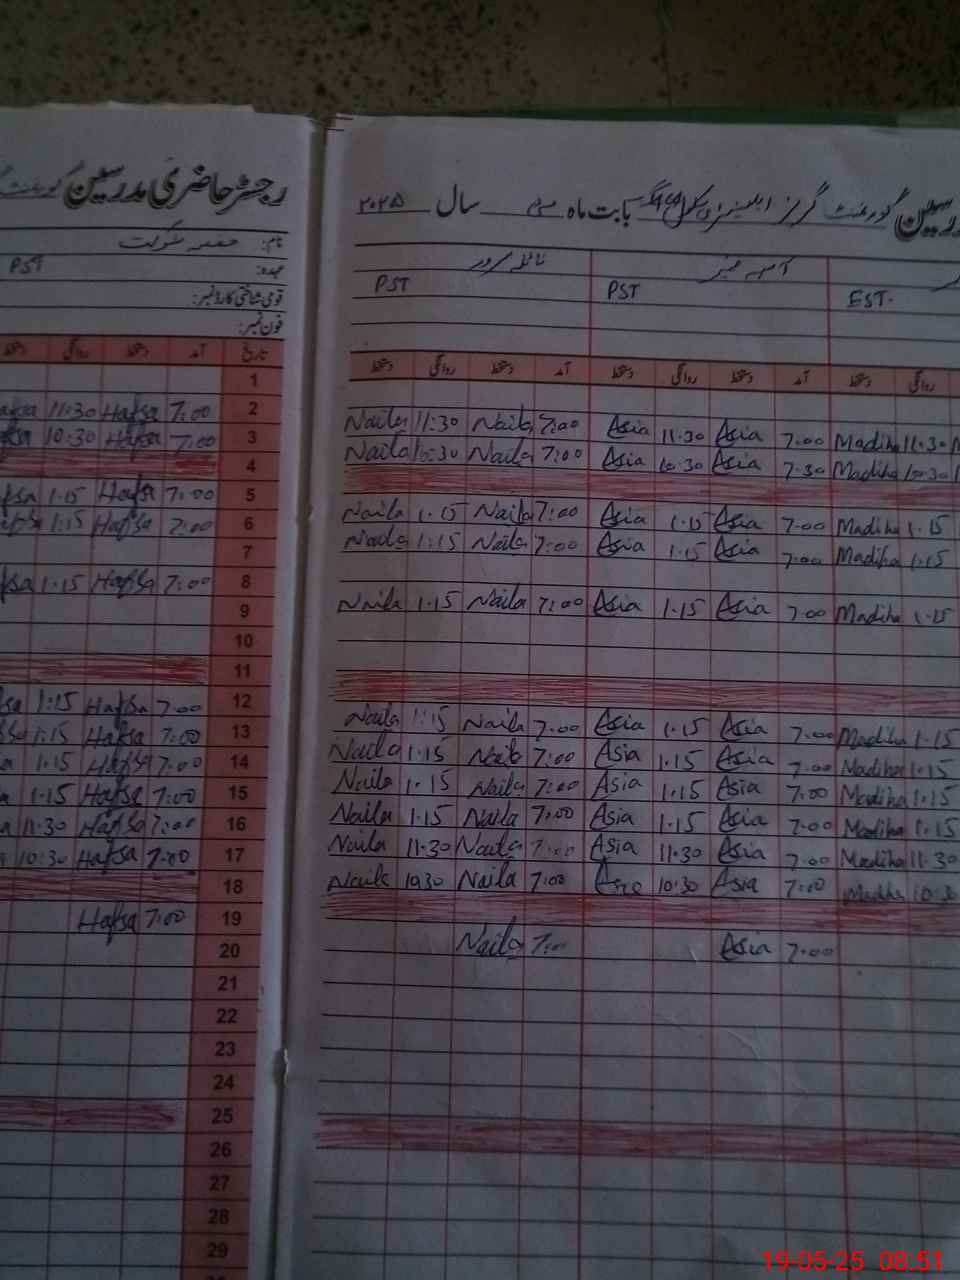 رجسٹر حاضری مدرسین گورنمنٹ
رسین گورنمنٹ گرلز ایلیمنٹری سکول بابت ماہ مئی سال ۲۰۲۵
نام: حفصہ شوکت
نائلہ سرور
عہدہ: PST
PST PST EST.
قومی شناختی کارڈ نمبر:
فون نمبر:
تاریخ آمد دستخط روانگی دستخط
دستخط روانگی دستخط آمد دستخط روانگی دستخط آمد دستخط روانگی
1
11:30 Hafsa 7:00 2
Naila 11:30 Naila 7:00 Asia 11.30 Asia 7.00 Madiha 11.30
10:30 Hafsa 7:00 3
Naila 10:30 Naila 7:00 Asia 10.30 Asia 7.30 Madiha 10.30
4
1.15 Hafsa 7:00 5
Naila 1.15 Naila 7:00 Asia 1.15 Asia 7.00 Madiha 1.15
1:15 Hafsa 7:00 6
Naila 1:15 Naila 7:00 Asia 1.15 Asia 7.00 Madiha 1.15
7
1.15 Hafsa 7:00 8
Naila 1.15 Naila 7:00 Asia 1.15 Asia 7.00 Madiha 1.15
9
10
11
1:15 Hafsa 7:00 12
Naila 1:15 Naila 7.00 Asia 1.15 Asia 7.00 Madiha 1.15
1:15 Hafsa 7:00 13
Naila 1.15 Naila 7:00 Asia 1.15 Asia 7.00 Madiha 1.15
1.15 Hafsa 7:00 14
Naila 1.15 Naila 7:00 Asia 1.15 Asia 7.00 Madiha 1.15
1.15 Hafsa 7:00 15
Naila 1.15 Naila 7:00 Asia 1.15 Asia 7.00 Madiha 1.15
11:30 Hafsa 7:00 16
Naila 11.30 Naila 7:00 Asia 11.30 Asia 7.00 Madiha 11.30
10:30 Hafsa 7:00 17
Naila 1030 Naila 7:00 Asia 10:30 Asia 7:00 Madiha 10.30
18
Hafsa 7:00 19
Naila 7:00 Asia 7.00
20
21
22
23
24
25
26
27
28
29
19-05-25 08.51